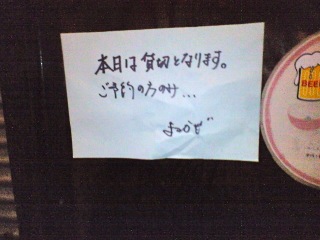 本日は貸切となります。
ご予約の方のみ...
よつかぜ
BEER